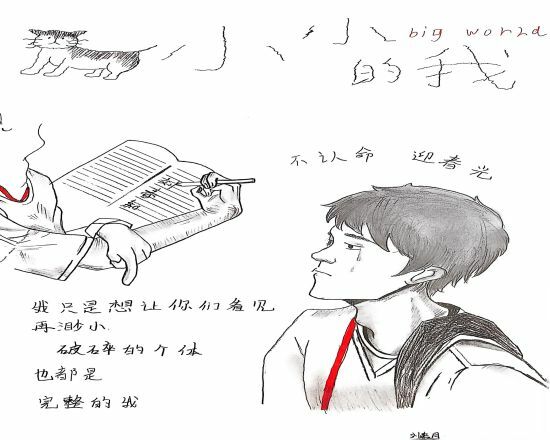 小小 big world
的我
不认命 迎春光
我只是想让你们看见
再渺小
破碎的个体
也都是
完整的我